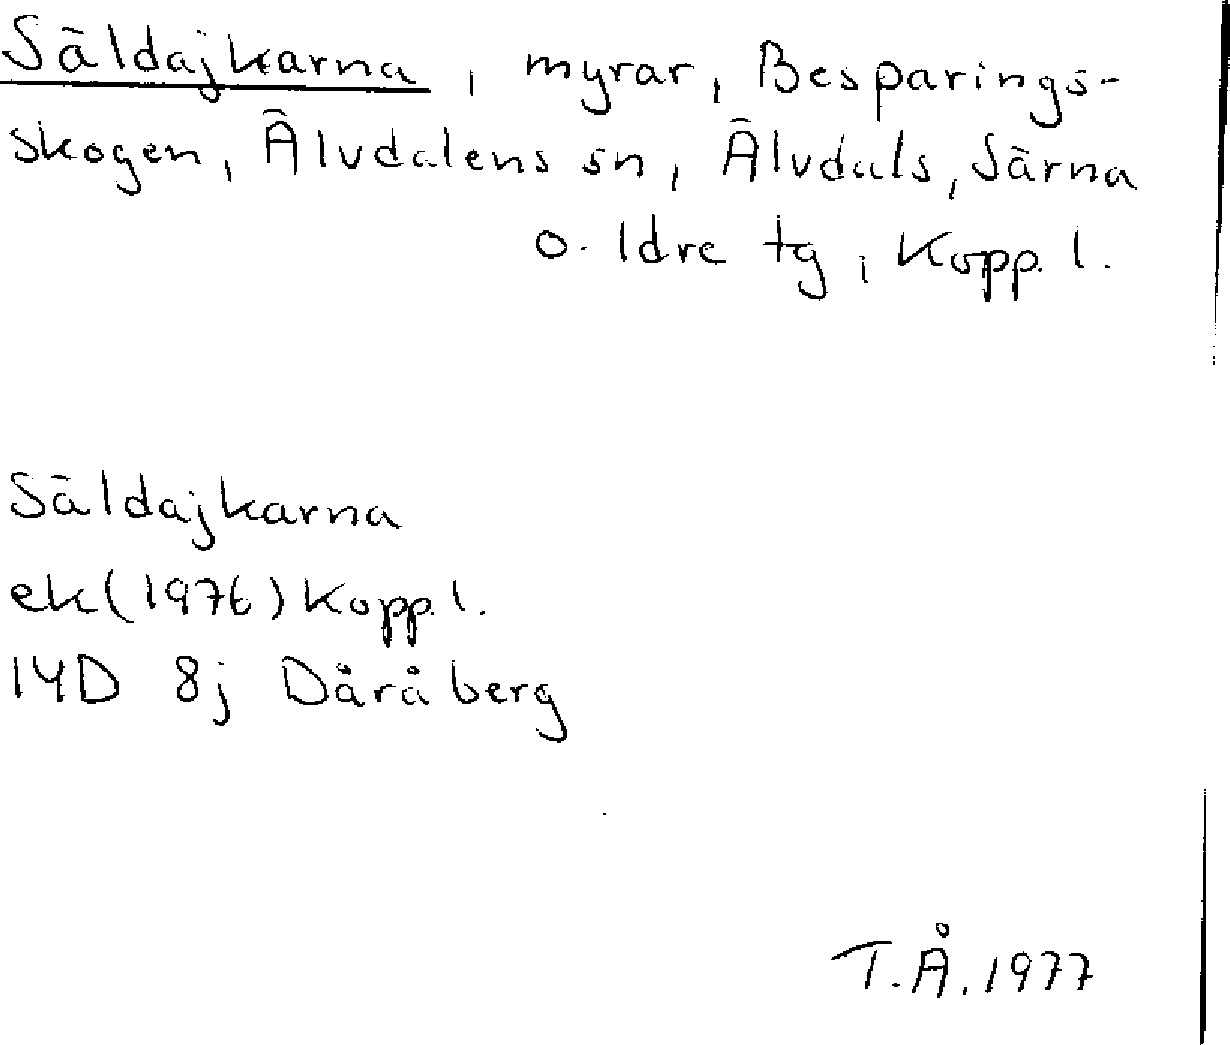 Säldajkarna, myrar, Besparings-
skogen, Älvdalens sn, Älvdals, Särna
o. Idre tg, Kopp. l.
Säldajkarna
ek (1976) Kopp. l.
14D 8j Däråberg
T.Å. 1977